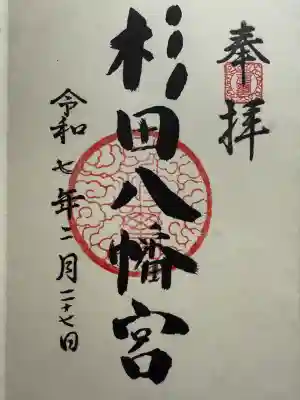 奉拝
杉田八幡宮
令和七年二月二十七日